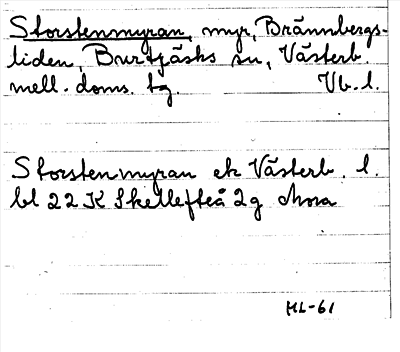 Storstenmyran, myr, Brännbergs-
liden, Burträsks sn, Västerb.
mell. doms. tg. Vb. l.
Storstenmyran ek Västerb. l.
bl 22 K Skellefteå 2g Mosa
HL-61